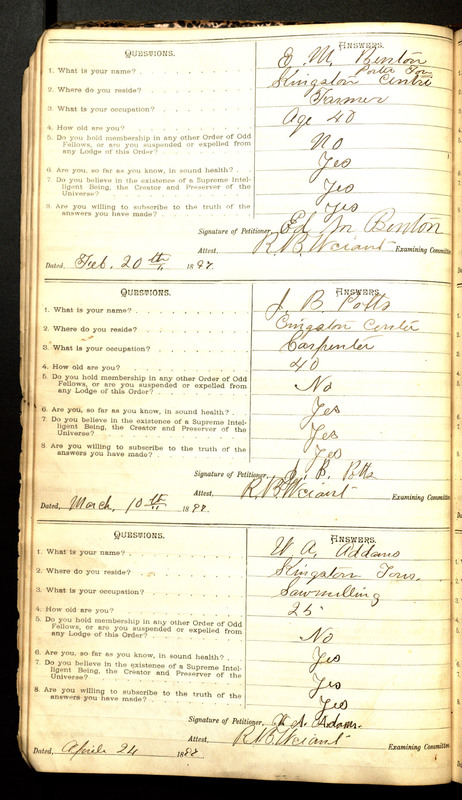 QUESTIONS. ANSWERS.
1. What is your name? E. M. Benton
Porter Tow
2. Where do you reside? Kingston Centre
3. What is your occupation? Farmer
4. How old are you? Age 40
5. Do you hold membership in any other Order of Odd
Fellows, or are you suspended or expelled from
any Lodge of this Order? No
6. Are you, so far as you know, in sound health? Yes
7. Do you believe in the existence of a Supreme Intel-
ligent Being, the Creator and Preserver of the
Universe? Yes
8. Are you willing to subscribe to the truth of the
answers you have made? Yes
Signature of Petitioner, Ed M Benton
Attest, R. B. Weiant Examining Committe
Dated, Feb. 20th 1887.
QUESTIONS. ANSWERS.
1. What is your name? J B Potts
2. Where do you reside? Cingston Center
3. What is your occupation? Carpenter
4. How old are you? 40
5. Do you hold membership in any other Order of Odd
Fellows, or are you suspended or expelled from
any Lodge of this Order? No
6. Are you, so far as you know, in sound health? Yes
7. Do you believe in the existence of a Supreme Intel-
ligent Being, the Creator and Preserver of the
Universe? Yes
8. Are you willing to subscribe to the truth of the
answers you have made? Yes
Signature of Petitioner, J. B. Potts
Attest, R. B. Weiant Examining Committe
Dated, March, 10th 1887.
QUESTIONS. ANSWERS.
1. What is your name? W A. Addams
2. Where do you reside? Kingston Tons.
3. What is your occupation? Sawmilling
4. How old are you? 25
5. Do you hold membership in any other Order of Odd
Fellows, or are you suspended or expelled from
any Lodge of this Order? No
6. Are you, so far as you know, in sound health? Yes
7. Do you believe in the existence of a Supreme Intel-
ligent Being, the Creator and Preserver of the
Universe? Yes
8. Are you willing to subscribe to the truth of the
answers you have made? Yes
Signature of Petitioner, W A. Adams.
Attest, R. B. Weiant Examining Committe
Dated, Aprile 24 1887